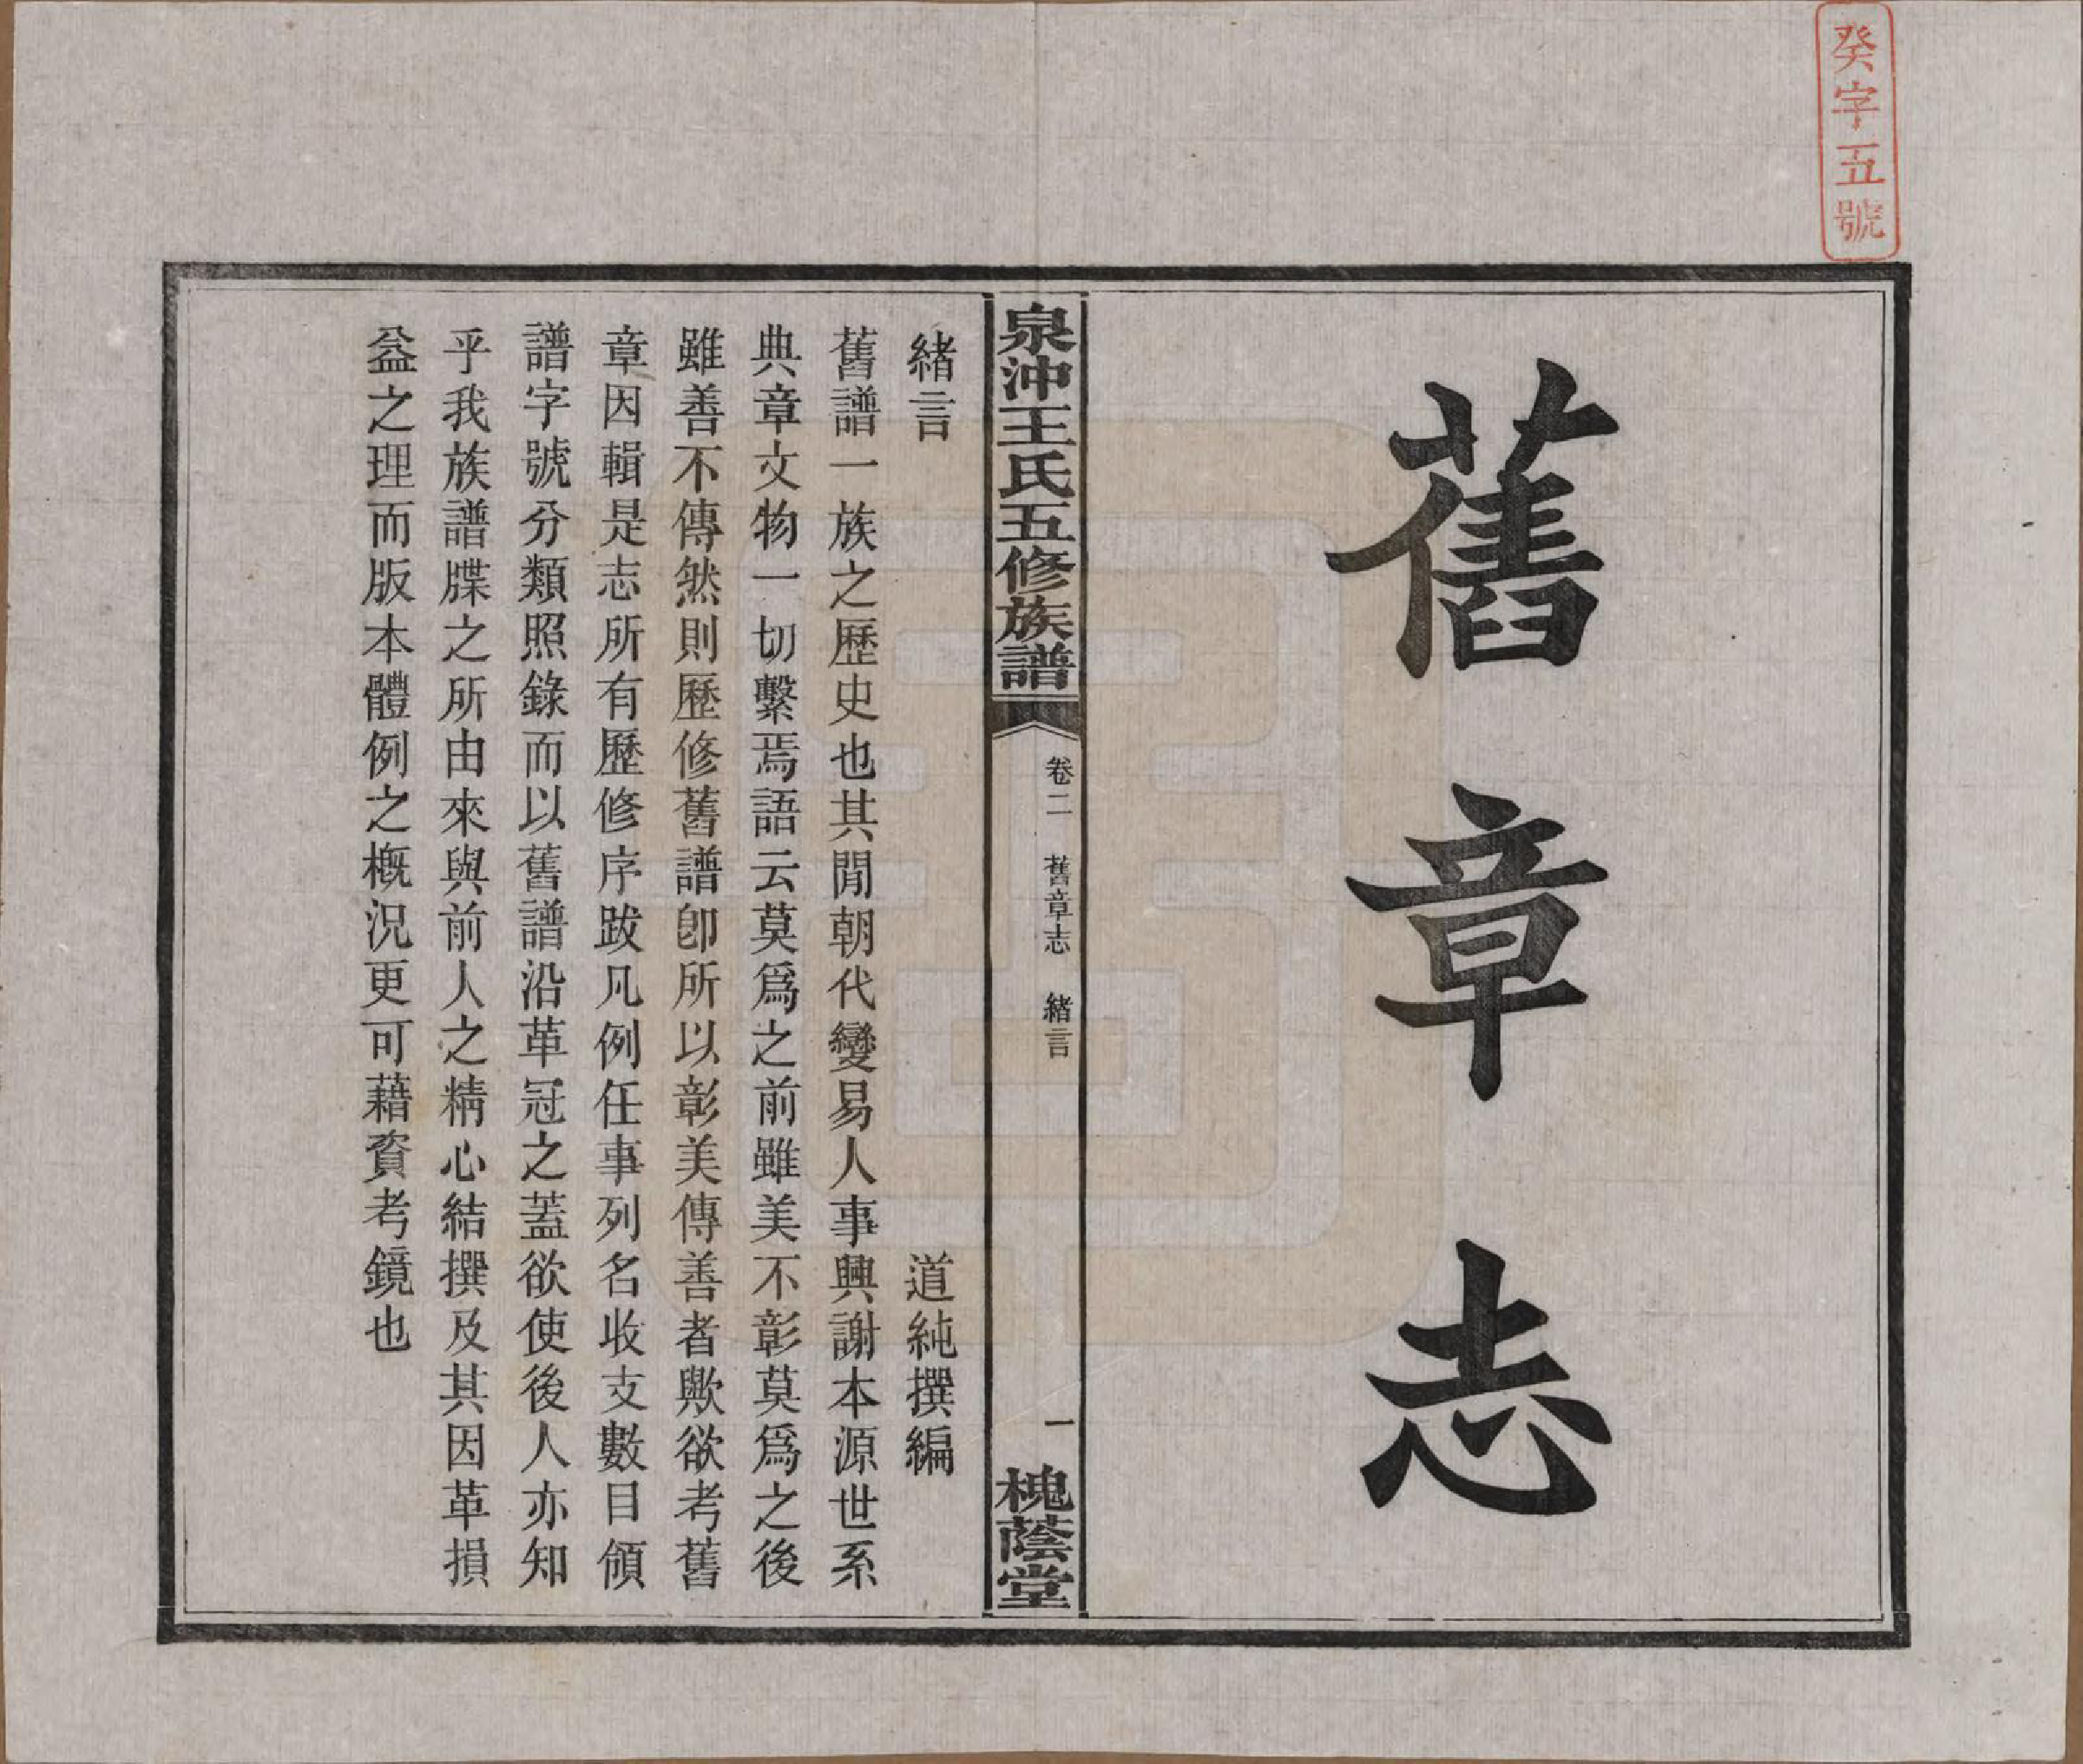 癸字五號
舊章志
泉沖王氏五修族譜
卷二 舊章志 緒言
一
槐蔭堂
緒言 道純撰編
舊譜一族之歷史也其閒朝代變易人事興謝本源世系
典章文物一切繫焉語云莫爲之前雖美不彰莫爲之後
雖善不傳然則歷修舊譜卽所以彰美傳善者歟欲考舊
章因輯是志所有歷修序跋凡例任事列名收支數目領
譜字號分類照錄而以舊譜沿革冠之蓋欲使後人亦知
乎我族譜牒之所由來與前人之精心結撰及其因革損
益之理而版本體例之概況更可藉資考鏡也